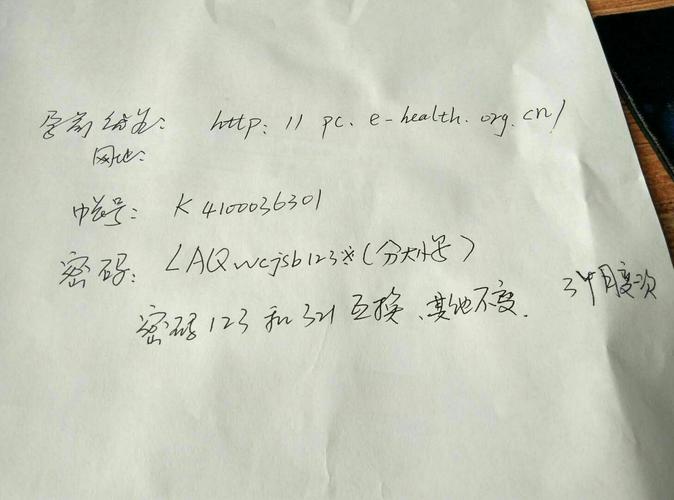 孕前优生: http://pc.e-health.org.cn/
网址:
帐号: K4100036301
密码: LAQwcjsb123※(分大小写)
密码123和321互换、其他不变. 3个月变一次